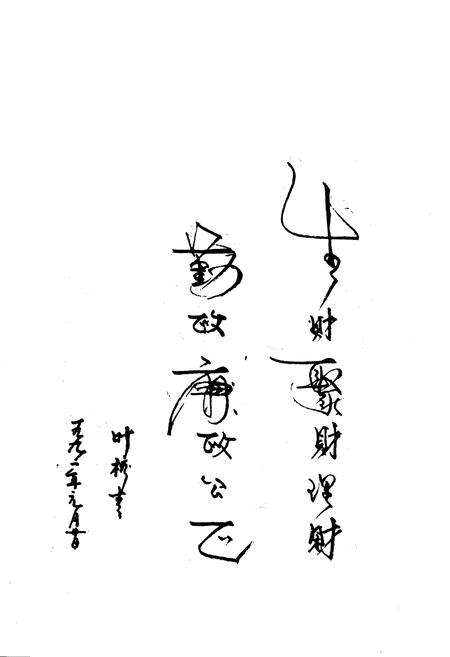 生财聚财理财
勤政廉政公正
叶
一九九二年元月廿日